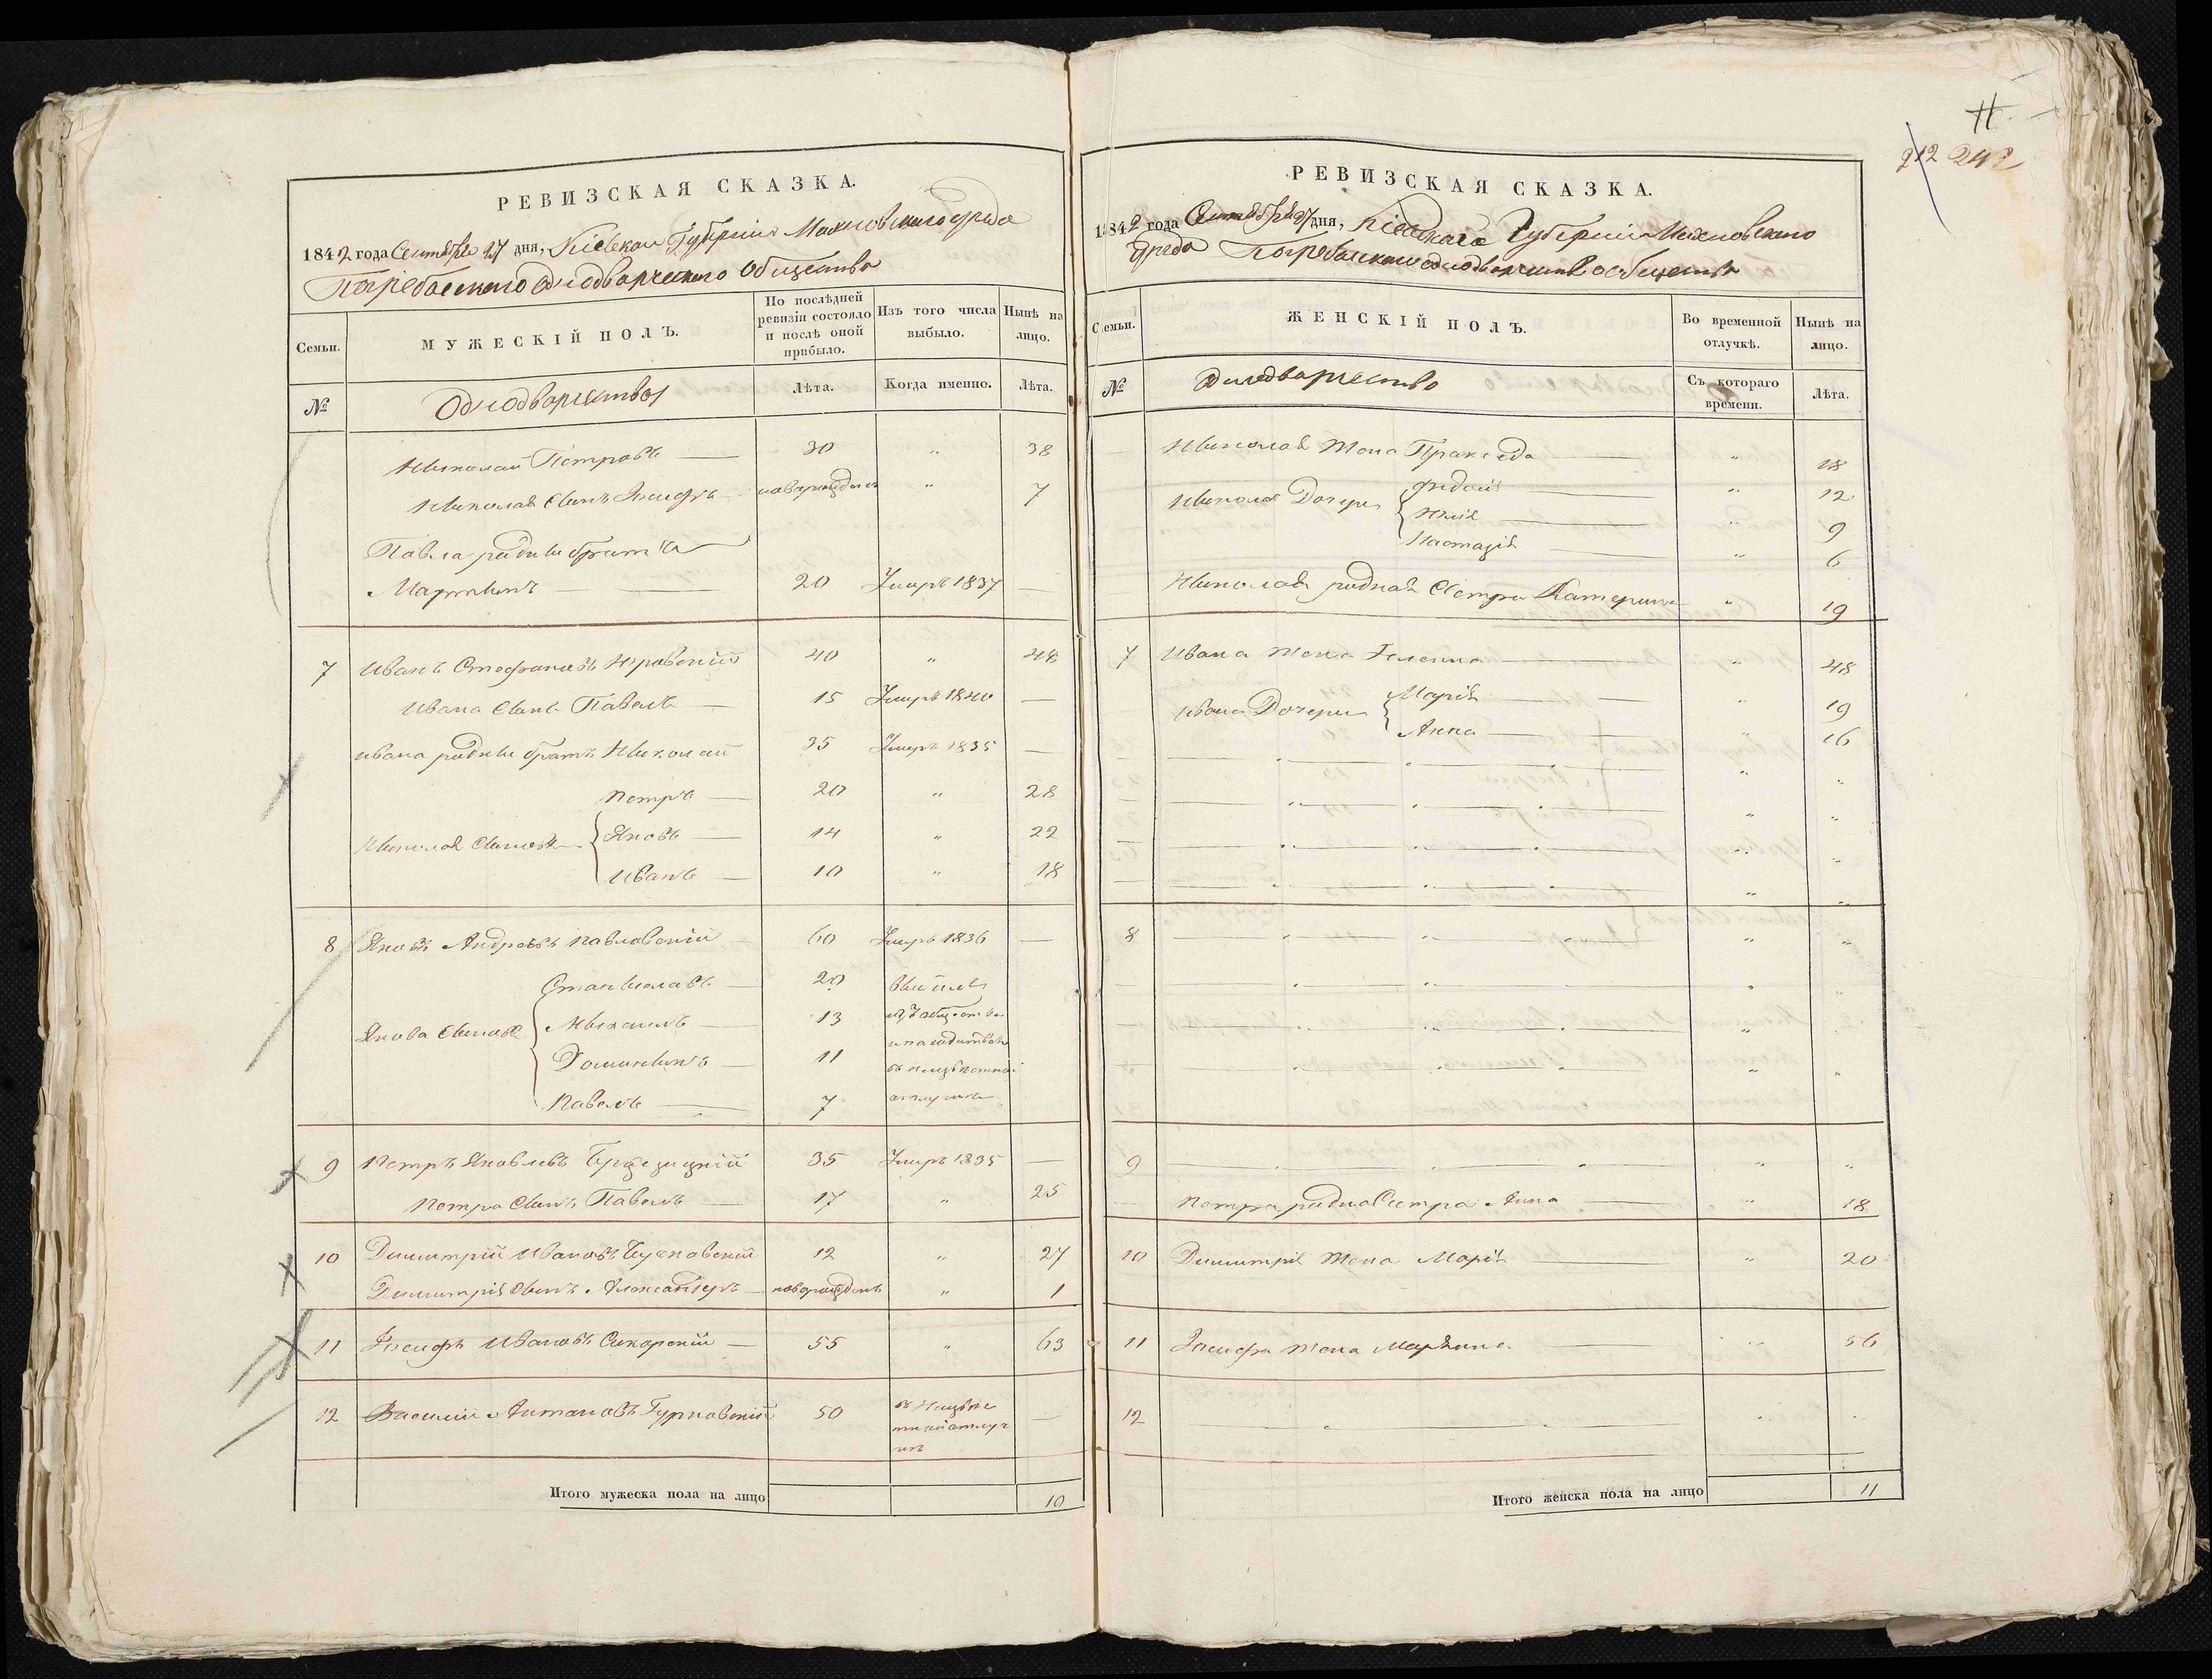 РЕВИЗСКАЯ СКАЗКА.
1842 года Сентября 27 дня, Кіевской Губерніи Махновскаго уѣзда
Погребыскаго Однодворческаго Общества
Семьи.
МУЖЕСКІЙ ПОЛЪ.
По послѣдней ревизіи состояло и послѣ оной прибыло.
Изъ того числа выбыло.
Нынѣ на лицо.
№
Однодворчества
Лѣта.
Когда именно.
Лѣта.
Николай Петровъ — 30 „ 38
Николая Сынъ Іосифъ — новорожденъ „ 7
Павла родный братъ
Мартинъ — 20 Умеръ 1837 —
7 Иванъ Стефановъ 40 „ 48
Ивана Сынъ Павелъ — 15 Умеръ 1840 —
Ивана родный братъ Николай 35 Умеръ 1835 —
Петръ — 20 „ 28
Николая Сыновья { Яковъ — 14 „ 22
Иванъ — 10 „ 18
8 Яковъ Андреевъ Павловскій 60 Умеръ 1836 —
Станиславъ — 20
Якова Сыновья { Михаилъ — 13 изъ общества
Доминикъ — 11
Павелъ — 7 отлучке
9 Петръ Яковлевъ 35 Умеръ 1835 —
Петра Сынъ Павелъ — 17 „ 25
10 Димитрій Ивановъ 12 „ 27
Димитрія Сынъ Александеръ — новорожденъ „ 1
11 Іосифъ Ивановъ Сикорскій — 55 „ 63
12 Василій Антоновъ Гурковскій 50 —
Итого мужеска пола на лицо 10
11.
212 242
РЕВИЗСКАЯ СКАЗКА.
1842 года Сентября 27 дня, Кіевскаго Губерніи Махновскаго
уѣзда Погребыскаго однодворческаго общества
Семьи.
ЖЕНСКІЙ ПОЛЪ.
Во временной отлучкѣ.
Нынѣ на лицо.
№
Однодворчество
Съ котораго времени.
Лѣта.
Николая Жена Праксeда — „ 18
Николая Дочери { — „ 12
Юлія — „ 9
Настазія — „ 6
Николая родная Сестра Катерина „ 19
7 Ивана Жена Гелена — „ 48
Ивана Дочери { Марія — „ 19
Анна — 16
8
9
Петра родна Сестра Анна — „ 18
10 Димитрія Жена Марія — „ 20
11 Іосифа Жена Маріянна — „ 56
12
Итого женска пола на лицо 11